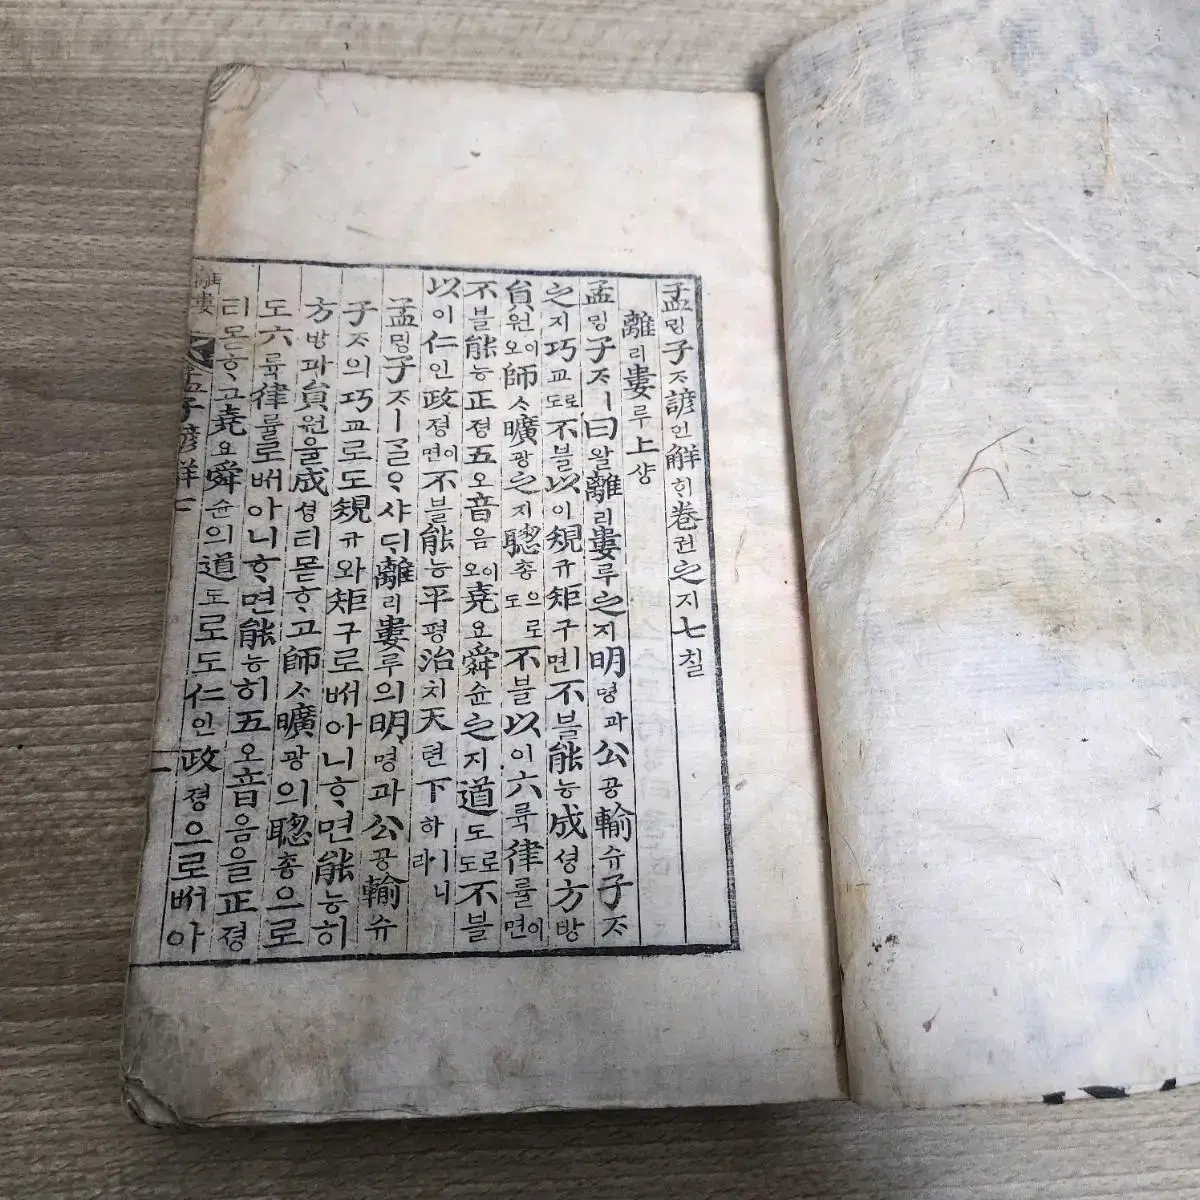 孟ᄆᆡᆼ子ᄌᆞ諺언解ᄒᆡ卷권之지七칠
離리婁루上샹
孟ᄆᆡᆼ子ᄌᆞㅣ曰왈離리婁루之지明명과公공輸슈子ᄌᆞ
之지巧교로도不블以이規규矩구ㅣ면不블能능成셩方방
員원이오師ᄉᆞ曠광之지聦총으로도不블以이六륙律률이면
不블能능正졍五오音음이오堯요舜슌之지道도로도不블
以이仁인政졍이면不블能능平평治치天텬下하ㅣ니라
孟ᄆᆡᆼ子ᄌᆞㅣᄀᆞᆯᄋᆞ샤ᄃᆡ離리婁루의明명과公공輸슈
子ᄌᆞ의巧교로도規규와矩구로ᄡᅥ아니ᄒᆞ면能능히
方방과員원을成셩티몯ᄒᆞ고師ᄉᆞ曠광의聦총으로
도六륙律률로ᄡᅥ아니ᄒᆞ면能능히五오音음을正졍
티몯ᄒᆞ고堯요舜슌의道도로도仁인政졍으로ᄡᅥ아
離婁 孟子諺解七 一